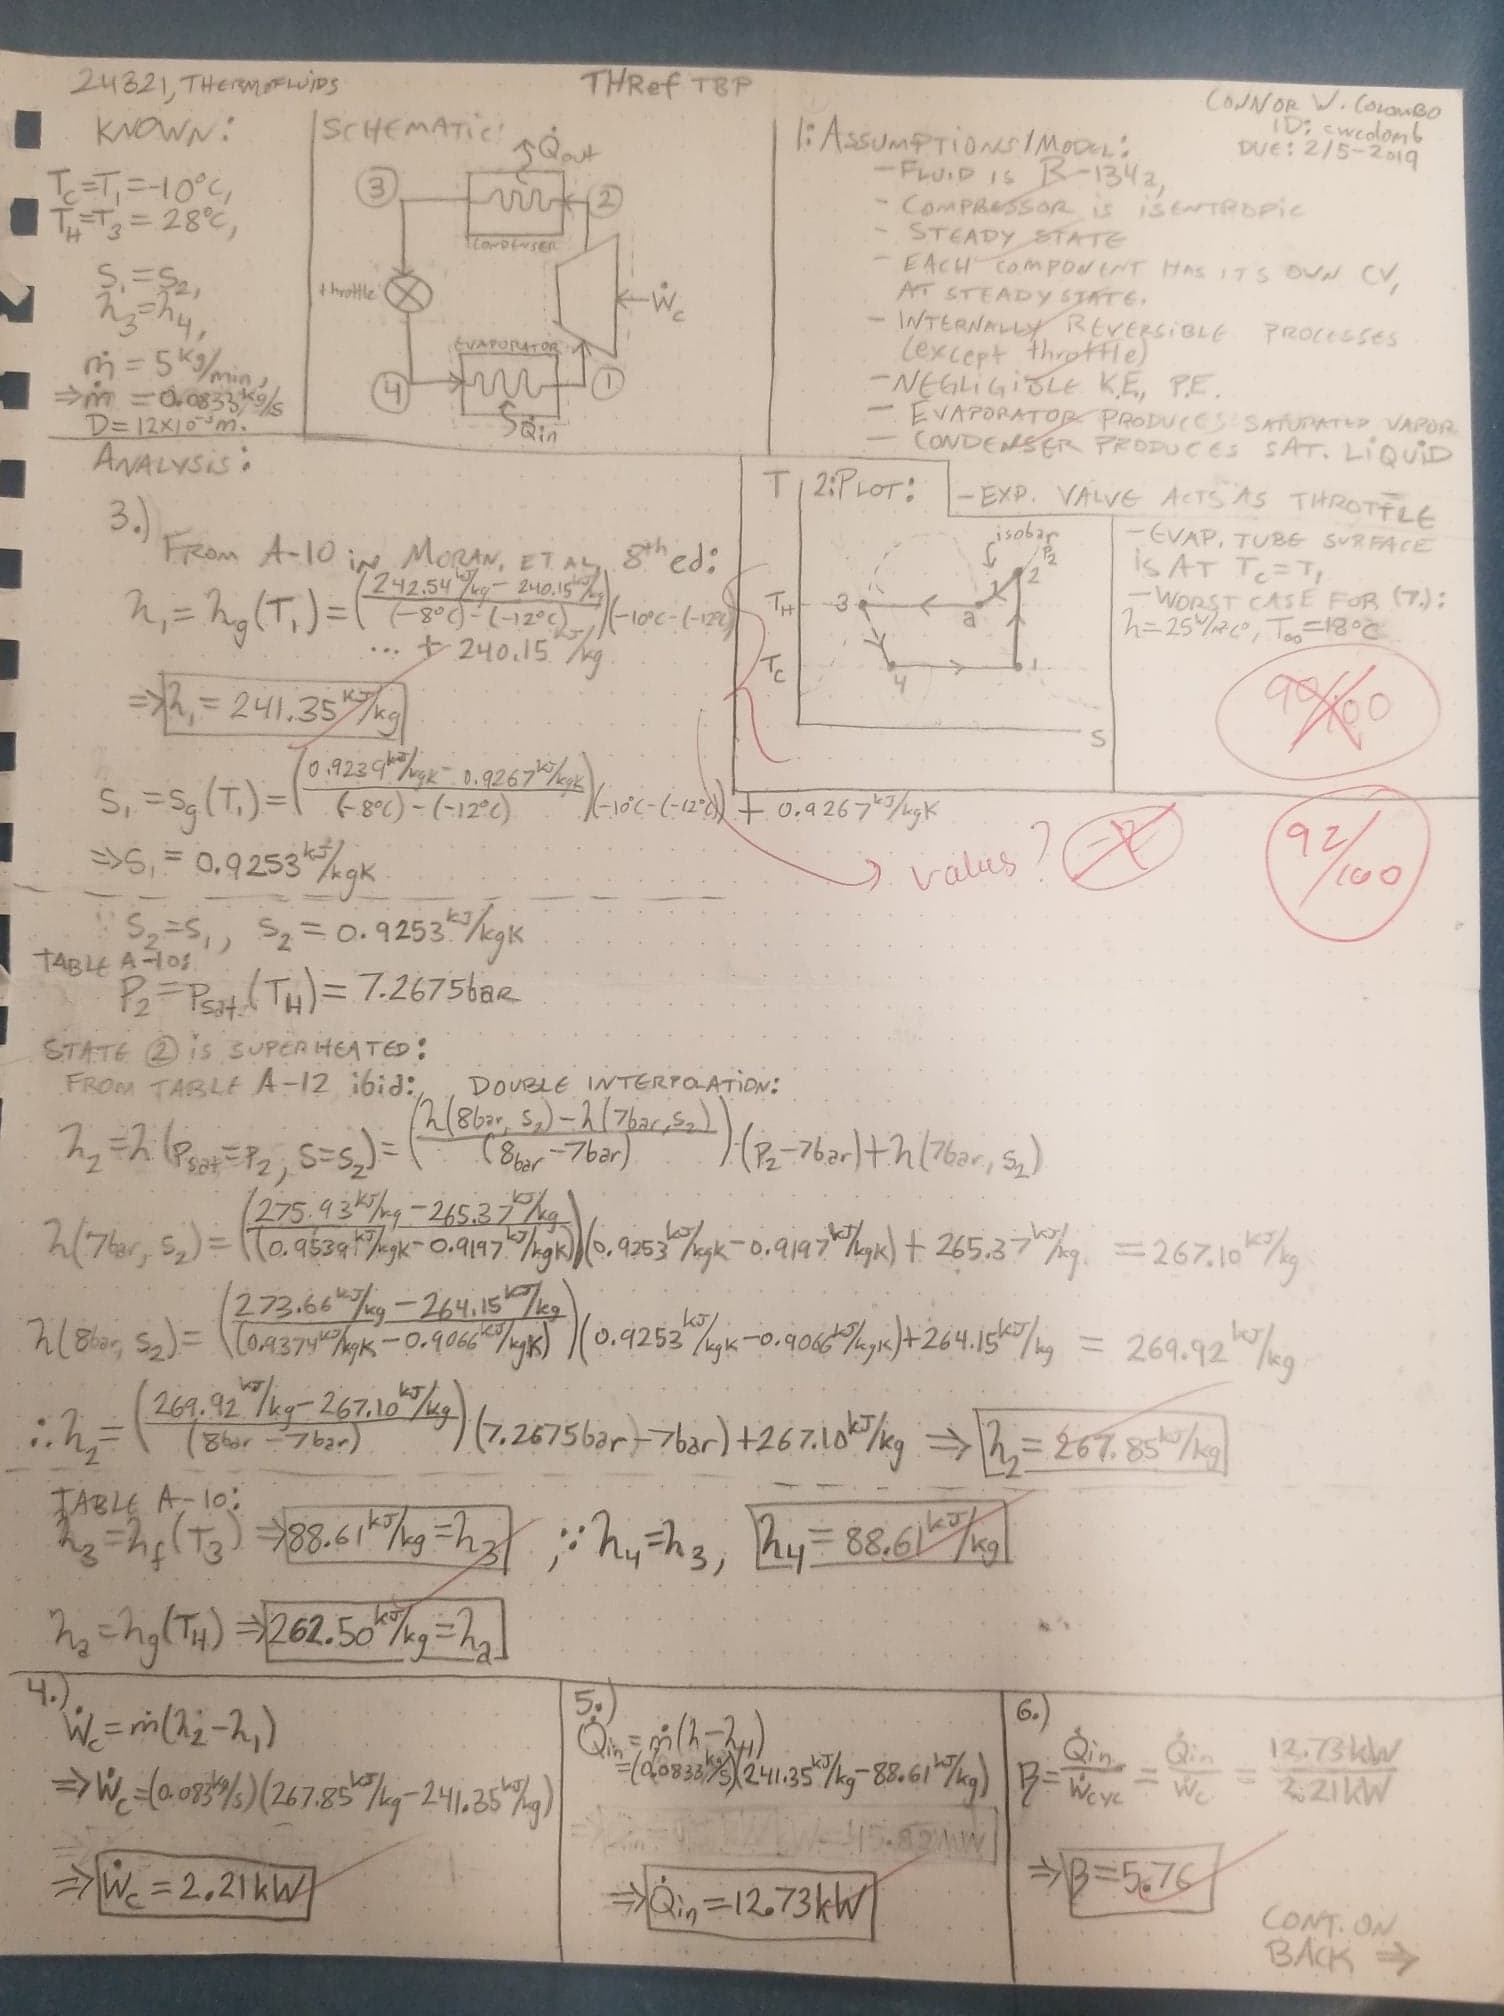 24321, THERMOFLUIDS
THRef TBP
CONNOR W. COLOMBO
ID: cwcolomb
DUE: 2/5-2019
KNOWN:
T_C=T_1=-10°C,
T_H=T_3=28°C,
s_1=s_2,
h_3=h_4,
ṁ = 5 kg/min,
⇒ṁ = 0.0833 kg/s
D=12x10⁻³m.
SCHEMATIC:
Q̇out
3
2
CONDENSER
throttle
←Ẇ_c
EVAPORATOR
4
1
Q̇in
1: ASSUMPTIONS/MODEL:
- FLUID IS R-134a,
- COMPRESSOR IS ISENTROPIC
- STEADY STATE
- EACH COMPONENT HAS ITS OWN CV,
AT STEADY STATE.
- INTERNALLY REVERSIBLE PROCESSES
(except throttle)
- NEGLIGIBLE K.E., P.E.
- EVAPORATOR PRODUCES SATURATED VAPOR
- CONDENSER PRODUCES SAT. LIQUID
- EXP. VALVE ACTS AS THROTTLE
- EVAP. TUBE SURFACE
IS AT T_C=T_1
- WORST CASE FOR (7.):
T∞=18°C
2: PLOT:
T
isobar
P_2
2
T_H
3
a
T_C
4
1
S
90/100
92/100
→ values?
-2
ANALYSIS:
3.)
FROM A-10 in MORAN, ET AL, 8th ed:
h_1 = h_g(T_1) = ((242.54 kJ/kg - 240.15 kJ/kg)/((-8°C)-(-12°C)))(-10°C-(-12°C))
... + 240.15 kJ/kg
⇒ h_1 = 241.35 kJ/kg
s_1 = s_g(T_1) = ((0.9239 kJ/kgK - 0.9267 kJ/kgK)/((-8°C)-(-12°C)))(-10°C-(-12°C)) + 0.9267 kJ/kgK
⇒ s_1 = 0.9253 kJ/kgK
∵ s_2=s_1, s_2 = 0.9253 kJ/kgK
TABLE A-10:
P_2 = P_sat.(T_H) = 7.2675 bar
STATE 2 is SUPERHEATED:
FROM TABLE A-12 ibid: DOUBLE INTERPOLATION:
h_2 = h(P_sat=P_2, s=s_2) = ((h(8bar, s_2) - h(7bar, s_2))/(8bar - 7bar))·(P_2-7bar) + h(7bar, s_2)
h(7bar, s_2) = ((275.93 kJ/kg - 265.37 kJ/kg)/(0.9539 kJ/kgK - 0.9197 kJ/kgK))(0.9253 kJ/kgK - 0.9197 kJ/kgK) + 265.37 kJ/kg = 267.10 kJ/kg
h(8bar, s_2) = ((273.66 kJ/kg - 264.15 kJ/kg)/(0.9374 kJ/kgK - 0.9066 kJ/kgK))(0.9253 kJ/kgK - 0.9066 kJ/kgK) + 264.15 kJ/kg = 269.92 kJ/kg
∴ h_2 = ((269.92 kJ/kg - 267.10 kJ/kg)/(8bar - 7bar))(7.2675bar - 7bar) + 267.10 kJ/kg ⇒ h_2 = 267.85 kJ/kg
TABLE A-10:
h_3 = h_f(T_3) ⇒ 88.61 kJ/kg = h_3, ∵ h_4=h_3, h_4 = 88.61 kJ/kg
h_a = h_g(T_H) ⇒ 262.50 kJ/kg = h_a
4.)
Ẇ_c = ṁ(h_2-h_1)
⇒ Ẇ_c = (0.083 kg/s)(267.85 kJ/kg - 241.35 kJ/kg)
⇒ Ẇ_c = 2.21 kW
5.)
Q̇in = ṁ(h-h_4)
= (0.0833 kg/s)(241.35 kJ/kg - 88.61 kJ/kg)
⇒ Q̇in = 12.73 kW
6.)
β = Q̇in/Ẇcyc = Q̇in/Ẇ_c = 12.73 kW/2.21 kW
⇒ β = 5.76
CONT. ON
BACK ⇒